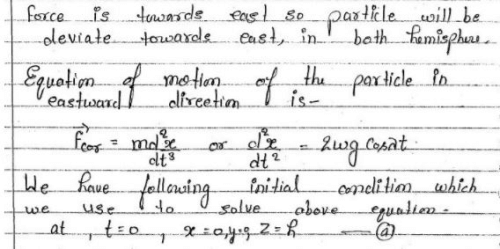 force is towards east so particle will be
deviate towards east, in both hemisphere.
Equation of motion of the particle in
eastward direction is-
F⃗cor = md²x/dt³ or d²x/dt² = 2wg cosλt
We have following initial condition which
we use to solve above equation-
at, t=0, x=0,y=0, Z=h —ⓐ